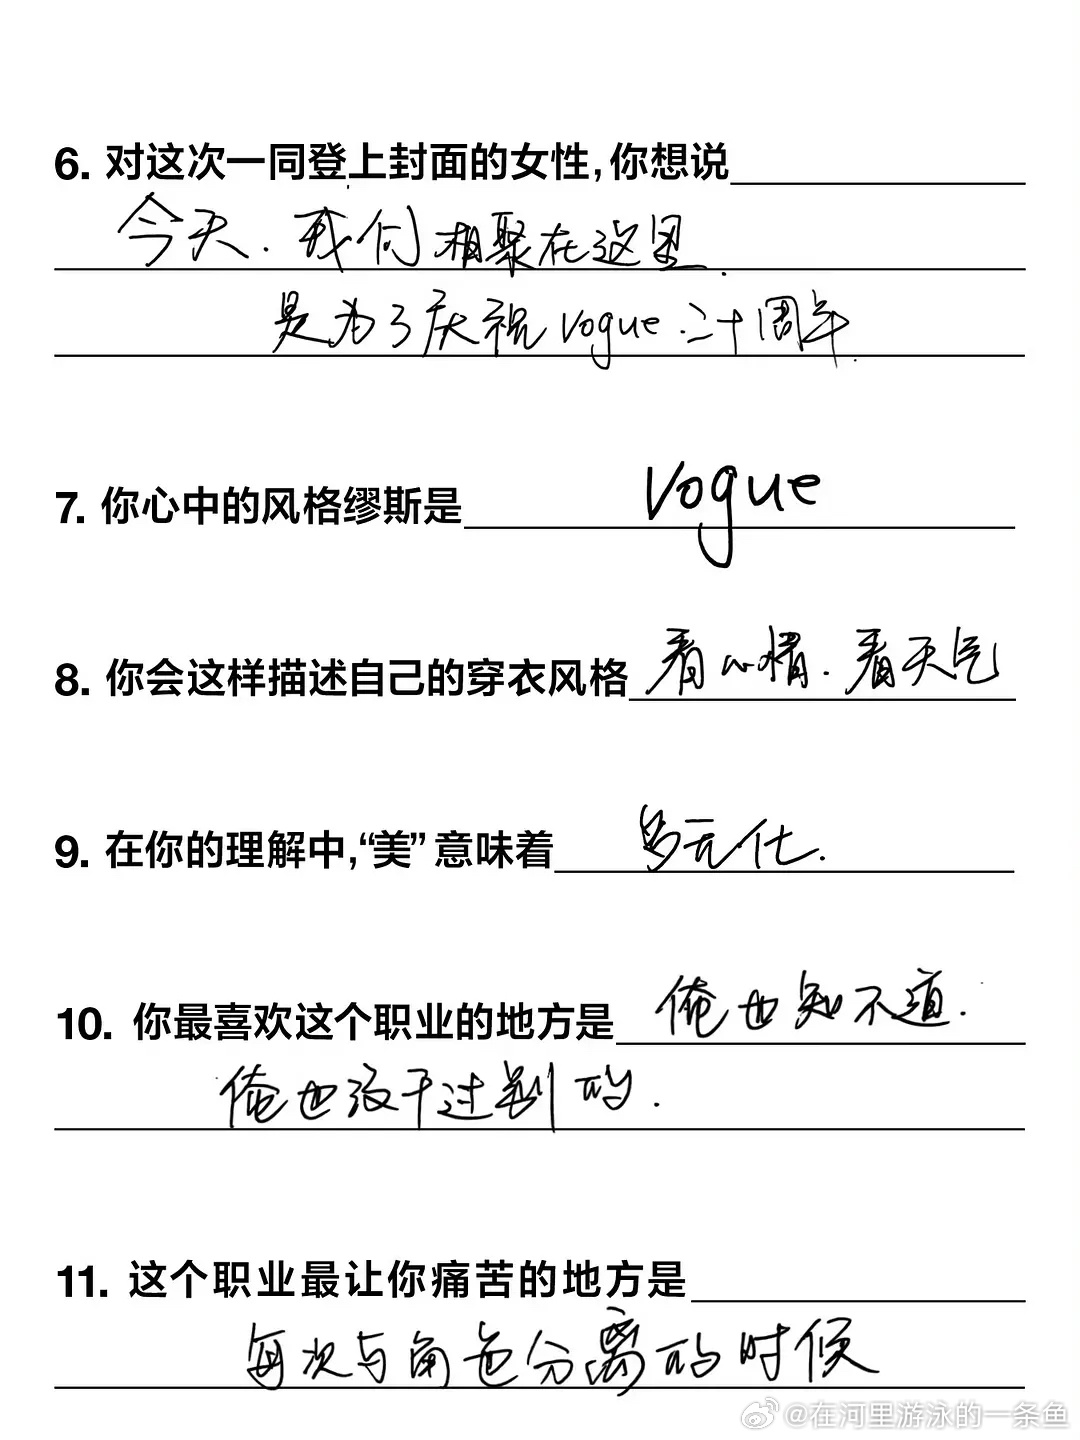 6. 对这次一同登上封面的女性,你想说
今天.我们相聚在这里.
是为了庆祝vogue.二十周年.
7. 你心中的风格缪斯是 vogue
8. 你会这样描述自己的穿衣风格 看心情.看天气
9. 在你的理解中,“美”意味着 多元化.
10. 你最喜欢这个职业的地方是 俺也知不道.
俺也没干过别的.
11. 这个职业最让你痛苦的地方是
每次与角色分离的时候
@在河里游泳的一条鱼